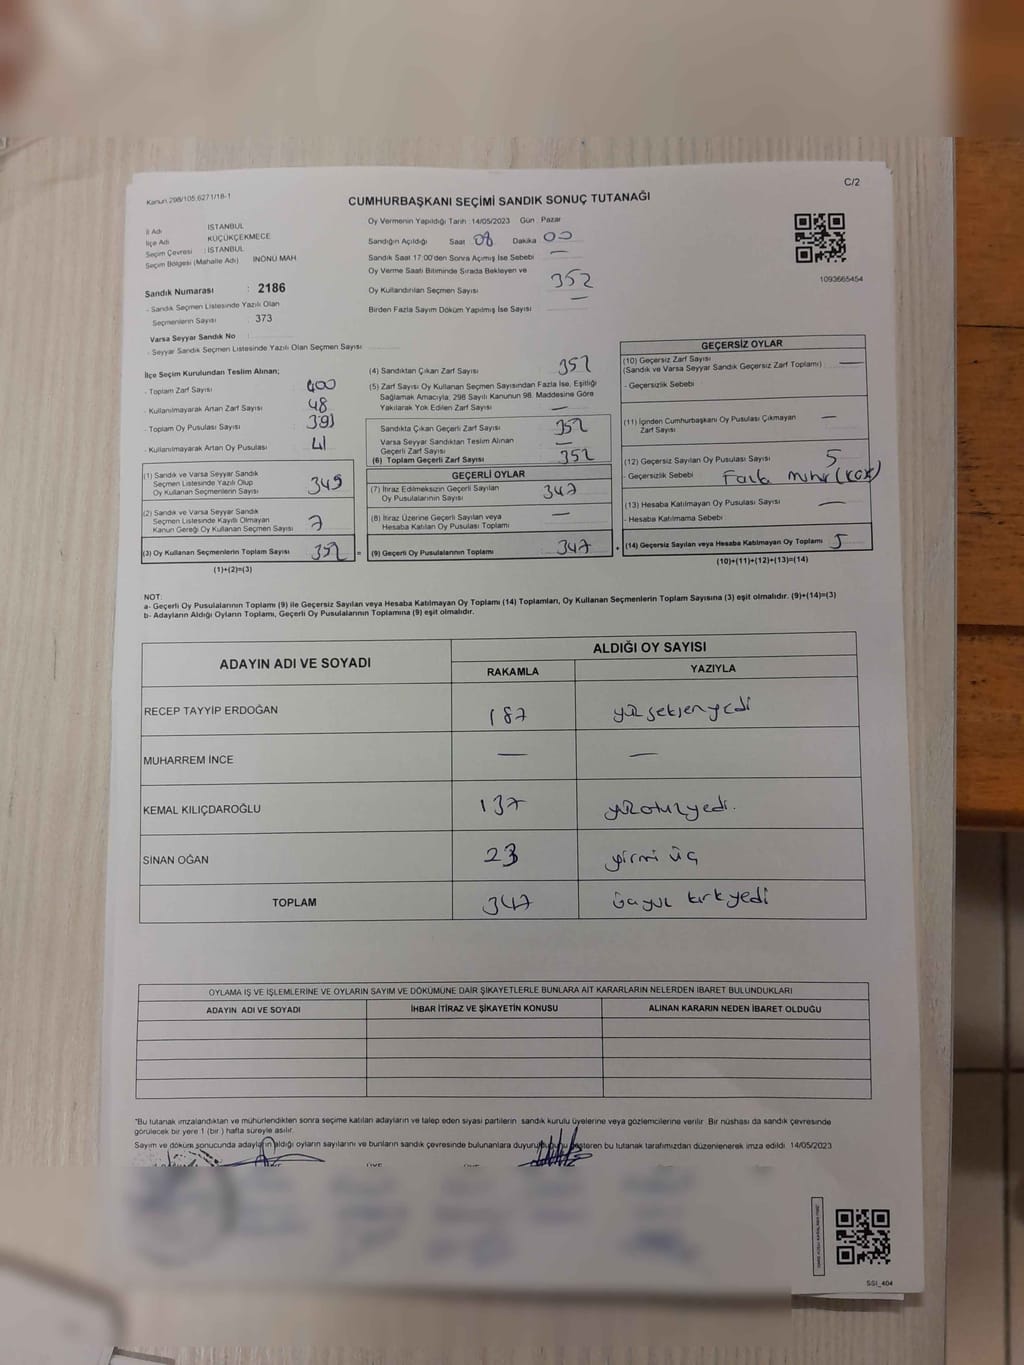 C/2
Kanun 298/105,6271/18-1
CUMHURBAŞKANI SEÇİMİ SANDIK SONUÇ TUTANAĞI
İl Adı İSTANBUL
İlçe Adı KÜÇÜKÇEKMECE
Seçim Çevresi : İSTANBUL
Seçim Bölgesi (Mahalle Adı) İNÖNÜ MAH
Sandık Numarası : 2186
- Sandık Seçmen Listesinde Yazılı Olan
Seçmenlerin Sayısı : 373
Varsa Seyyar Sandık No
- Seyyar Sandık Seçmen Listesinde Yazılı Olan Seçmen Sayısı
Oy Vermenin Yapıldığı Tarih :14/05/2023 Gün : Pazar
Sandığın Açıldığı Saat 08 Dakika 00
Sandık Saat 17:00'den Sonra Açımış İse Sebebi —
Oy Verme Saati Bitiminde Sırada Bekleyen ve
Oy Kullandırılan Seçmen Sayısı 352
Birden Fazla Sayım Döküm Yapılmış İse Sayısı —
1093665454
İlçe Seçim Kurulundan Teslim Alınan;
- Toplam Zarf Sayısı 400
- Kullanılmayarak Artan Zarf Sayısı 48
- Toplam Oy Pusulası Sayısı 393
- Kullanılmayarak Artan Oy Pusulası 41
(1) Sandık ve Varsa Seyyar Sandık
Seçmen Listesinde Yazılı Olup
Oy Kullanan Seçmenlerin Sayısı 345
(2) Sandık ve Varsa Seyyar Sandık
Seçmen Listesinde Kayıtlı Olmayan
Kanun Gereği Oy Kullanan Seçmen Sayısı 7
(3) Oy Kullanan Seçmenlerin Toplam Sayısı 352 =
(1)+(2)=(3)
(4) Sandıktan Çıkan Zarf Sayısı 352
(5) Zarf Sayısı Oy Kullanan Seçmen Sayısından Fazla İse, Eşitliği
Sağlamak Amacıyla, 298 Sayılı Kanunun 98. Maddesine Göre
Yakılarak Yok Edilen Zarf Sayısı —
Sandıkta Çıkan Geçerli Zarf Sayısı 352
Varsa Seyyar Sandıktan Teslim Alınan
Geçerli Zarf Sayısı —
(6) Toplam Geçerli Zarf Sayısı 352
GEÇERLİ OYLAR
(7) İtiraz Edilmeksizin Geçerli Sayılan
Oy Pusulalarının Sayısı 347
(8) İtiraz Üzerine Geçerli Sayılan veya
Hesaba Katılan Oy Pusulası Toplamı —
(9) Geçerli Oy Pusulalarının Toplamı 347 +
GEÇERSİZ OYLAR
(10) Geçersiz Zarf Sayısı
(Sandık ve Varsa Seyyar Sandık Geçersiz Zarf Toplamı) —
- Geçersizlik Sebebi
(11) İçinden Cumhurbaşkanı Oy Pusulası Çıkmayan
Zarf Sayısı —
(12) Geçersiz Sayılan Oy Pusulası Sayısı 5
- Geçersizlik Sebebi
(13) Hesaba Katılmayan Oy Pusulası Sayısı —
- Hesaba Katılmama Sebebi
(14) Geçersiz Sayılan veya Hesaba Katılmayan Oy Toplamı 5
(10)+(11)+(12)+(13)=(14)
NOT:
a- Geçerli Oy Pusulalarının Toplamı (9) ile Geçersiz Sayılan veya Hesaba Katılmayan Oy Toplamı (14) Toplamları, Oy Kullanan Seçmenlerin Toplam Sayısına (3) eşit olmalıdır. (9)+(14)=(3)
b- Adayların Aldığı Oyların Toplamı, Geçerli Oy Pusulalarının Toplamına (9) eşit olmalıdır.
ADAYIN ADI VE SOYADI
ALDIĞI OY SAYISI
RAKAMLA YAZIYLA
RECEP TAYYİP ERDOĞAN 187 yüzseksenyedi
MUHARREM İNCE — —
KEMAL KILIÇDAROĞLU 137 yüzotuzyedi.
SİNAN OĞAN 23 yirmi üç
TOPLAM 347 üçyüz kırkyedi
OYLAMA İŞ VE İŞLEMLERİNE VE OYLARIN SAYIM VE DÖKÜMÜNE DAİR ŞİKAYETLERLE BUNLARA AİT KARARLARIN NELERDEN İBARET BULUNDUKLARI
ADAYIN ADI VE SOYADI İHBAR İTİRAZ VE ŞİKAYETİN KONUSU ALINAN KARARIN NEDEN İBARET OLDUĞU
"Bu tutanak imzalandıktan ve mühürlendikten sonra seçime katılan adayların ve talep eden siyasi partilerin sandık kurulu üyelerine veya gözlemcilerine verilir. Bir nüshası da sandık çevresinde
görülecek bir yere 1 (bir ) hafta süreyle asılır.
Sayım ve döküm sonucunda adayların aldığı oyların sayılarını ve bunların sandık çevresinde bulunanlara bu tutanak tarafımızdan düzenlenerek imza edildi. 14/05/2023
SSİ_404